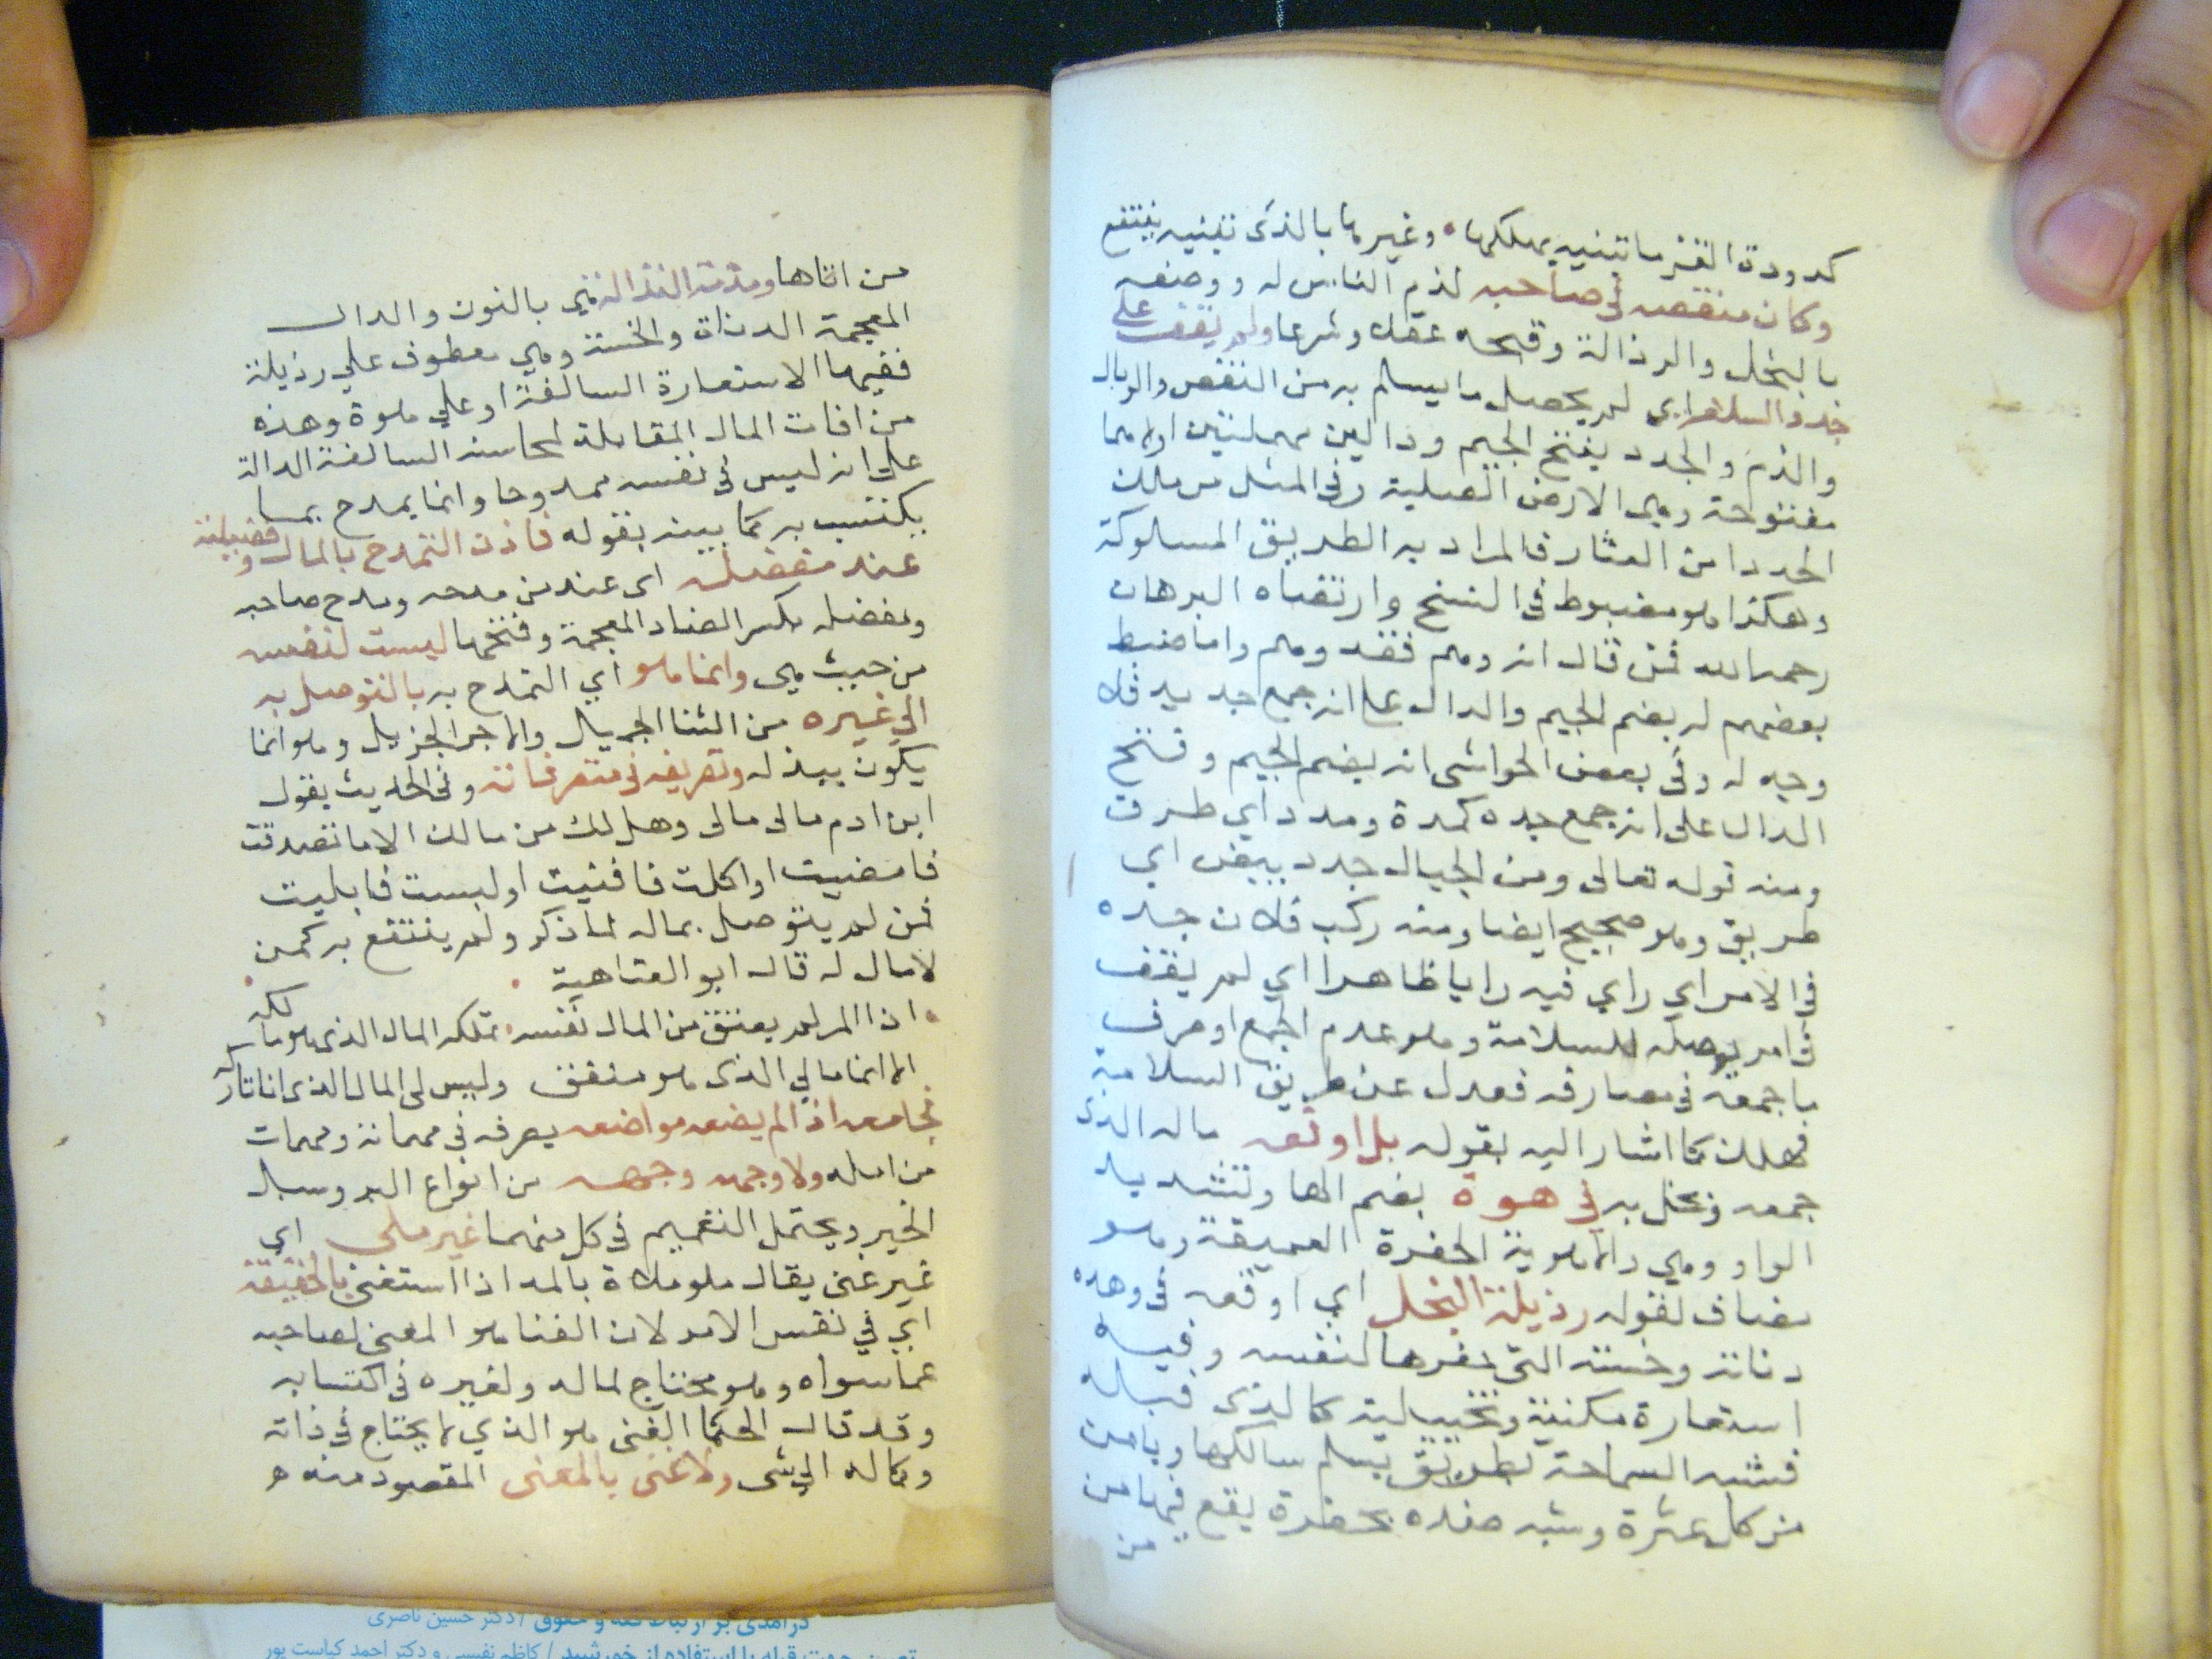 كدودة القز ما تبنيه يهلكها وغيرها بالذي تبنيه ينتفع
وكان منقصه في صاحبه لذم الناس له ووصفه
بالبخل والرذالة وقبحه عقلا وشرعا ولم يقف على
جدد السلامة اي لم يحصل ما يسلم به من النقص والوبال
والذم والجدد بفتح الجيم ودالين مهملتين اولاهما
مفتوحة وهي الارض الصلبة وفي المثل من سلك
الجدد امن العثار فالمراد به الطريق المسلوكة
وهكذا هو مضبوط في النسخ وارتضاه البرهان
رحمه الله فمن قال انه وهم فقد وهم واما ضبط
بعضهم له بضم الجيم والدال على انه جمع جديد فلا
وجه له وفي بعض الحواشي انه بضم الجيم وفتح
الدال على انه جمع جده كمدة ومدد اي طرق
ومنه قوله تعالى ومن الجبال جدد بيض اي
طريق وهو صحيح ايضا ومنه ركب فلان جده
في الامر اي راي فيه رايا ظاهرا اي لم يقف
في امر يوصله للسلامة وهو عدم الجمع او صرف
ما جمعه في مصارفه فعدل عن طريق السلامة
فهلك كما اشار اليه بقوله بل اوقعه ماله الذي
جمعه وبخل به في هوة بضم الها وتشديد
الواو وهي والاهوية الحفرة العميقة وهو
مضاف لقوله رذيلة البخل اي اوقعه في وهده
دنانة وخسته التي حفرها لنفسه وفيه
استعارة مكنية وتخييلية كالذي قبله
فشبه السماحة بطريق يسلم سالكها ويامن
من كل عثرة وشبه ضده بحفرة يقع فيها من
من
من اتاها ومذمة النذالة هي بالنون والدال
المعجمة الدناة والخسة وهي معطوف علي رذيلة
ففيها الاستعارة السالفة او علي هوة وهذه
من افات المال المقابلة لمحاسنه السالفة الدالة
علي انه ليس في نفسه ممدوحا وانما يمدح بما
يكتسب به كما بينه بقوله فاذن التمدح بالمال وفضيلته
عند مفضله اي عند من مدحه ومدح صاحبه
ومفضله بكسر الضاد المعجمة وفتحها ليست لنفسه
من حيث هي وانما هو اي التمدح به بالتوصل به
الي غيره من الثنا الجميل والاجر الجزيل وهو انما
يكون ببذله وتصريفه في متصرفاته وفي الحديث يقول
ابن ادم مالي مالي وهل لك من مالك الا ما تصدقت
فامضيت او اكلت فافنيت او لبست فابليت
فمن لم يتوصل بماله لما ذكر ولم ينتفع به كمن
لا مال له قال ابو العتاهية
اذا المرء لم يعتق من المال نفسه تملكه المال الذي هو مالكه
الا انما مالي الذي هو منفق وليس لي المال الذي انا تاركه
فجامعه اذا لم يضعه مواضعه يصرفه في مهماته ومهمات
من امله ولا وجهه وجهه من انواع البر وسبل
الخير ويحتمل التعميم في كل منهما غير ملي اي
غير غني يقال ملو ملاة بالمد اذا استغني بالحقيقة
اي في نفس الامر لان الغنا هو المغني لصاحبه
عما سواه وهو محتاج لماله ولغيره في اكتسابه
وقد قال الحكما الغني هو الذي لا يحتاج في ذاته
وكماله الي شي ولا غني بالمعني المقصود منه
درآمدی بر ارتباط فقه و حقوق / دکتر حسین ناصری
تعیین جهت قبله با استفاده از خورشید / کاظم نفیسی و دکتر احمد کیاست پور